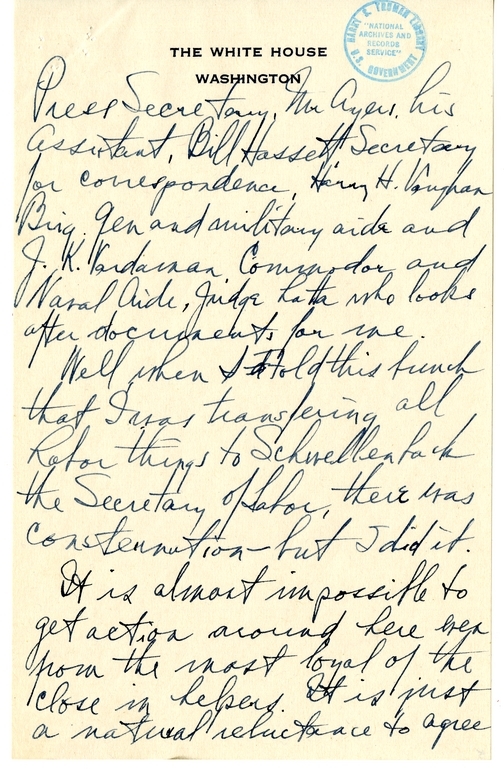 HARRY S. TRUMAN LIBRARY
"NATIONAL
ARCHIVES AND
RECORDS
SERVICE"
U.S. GOVERNMENT
THE WHITE HOUSE
WASHINGTON
Press Secretary, Mr Ayers, his
assistant, Bill Hassett Secretary
for correspondence, Harry H. Vaughan
Brig. Gen and military aide and
J. K. Vardaman Commodor and
Naval Aide, Judge Latta who looks
after documents for me.
Well when I told this bunch
that I was transfering all
Labor things to Schwellenback
the Secretary of Labor, there was
consternation-but I did it.
It is almost impossible to
get action around here even
from the most loyal of the
close in helpers. It is just
a natural reluctance to agree